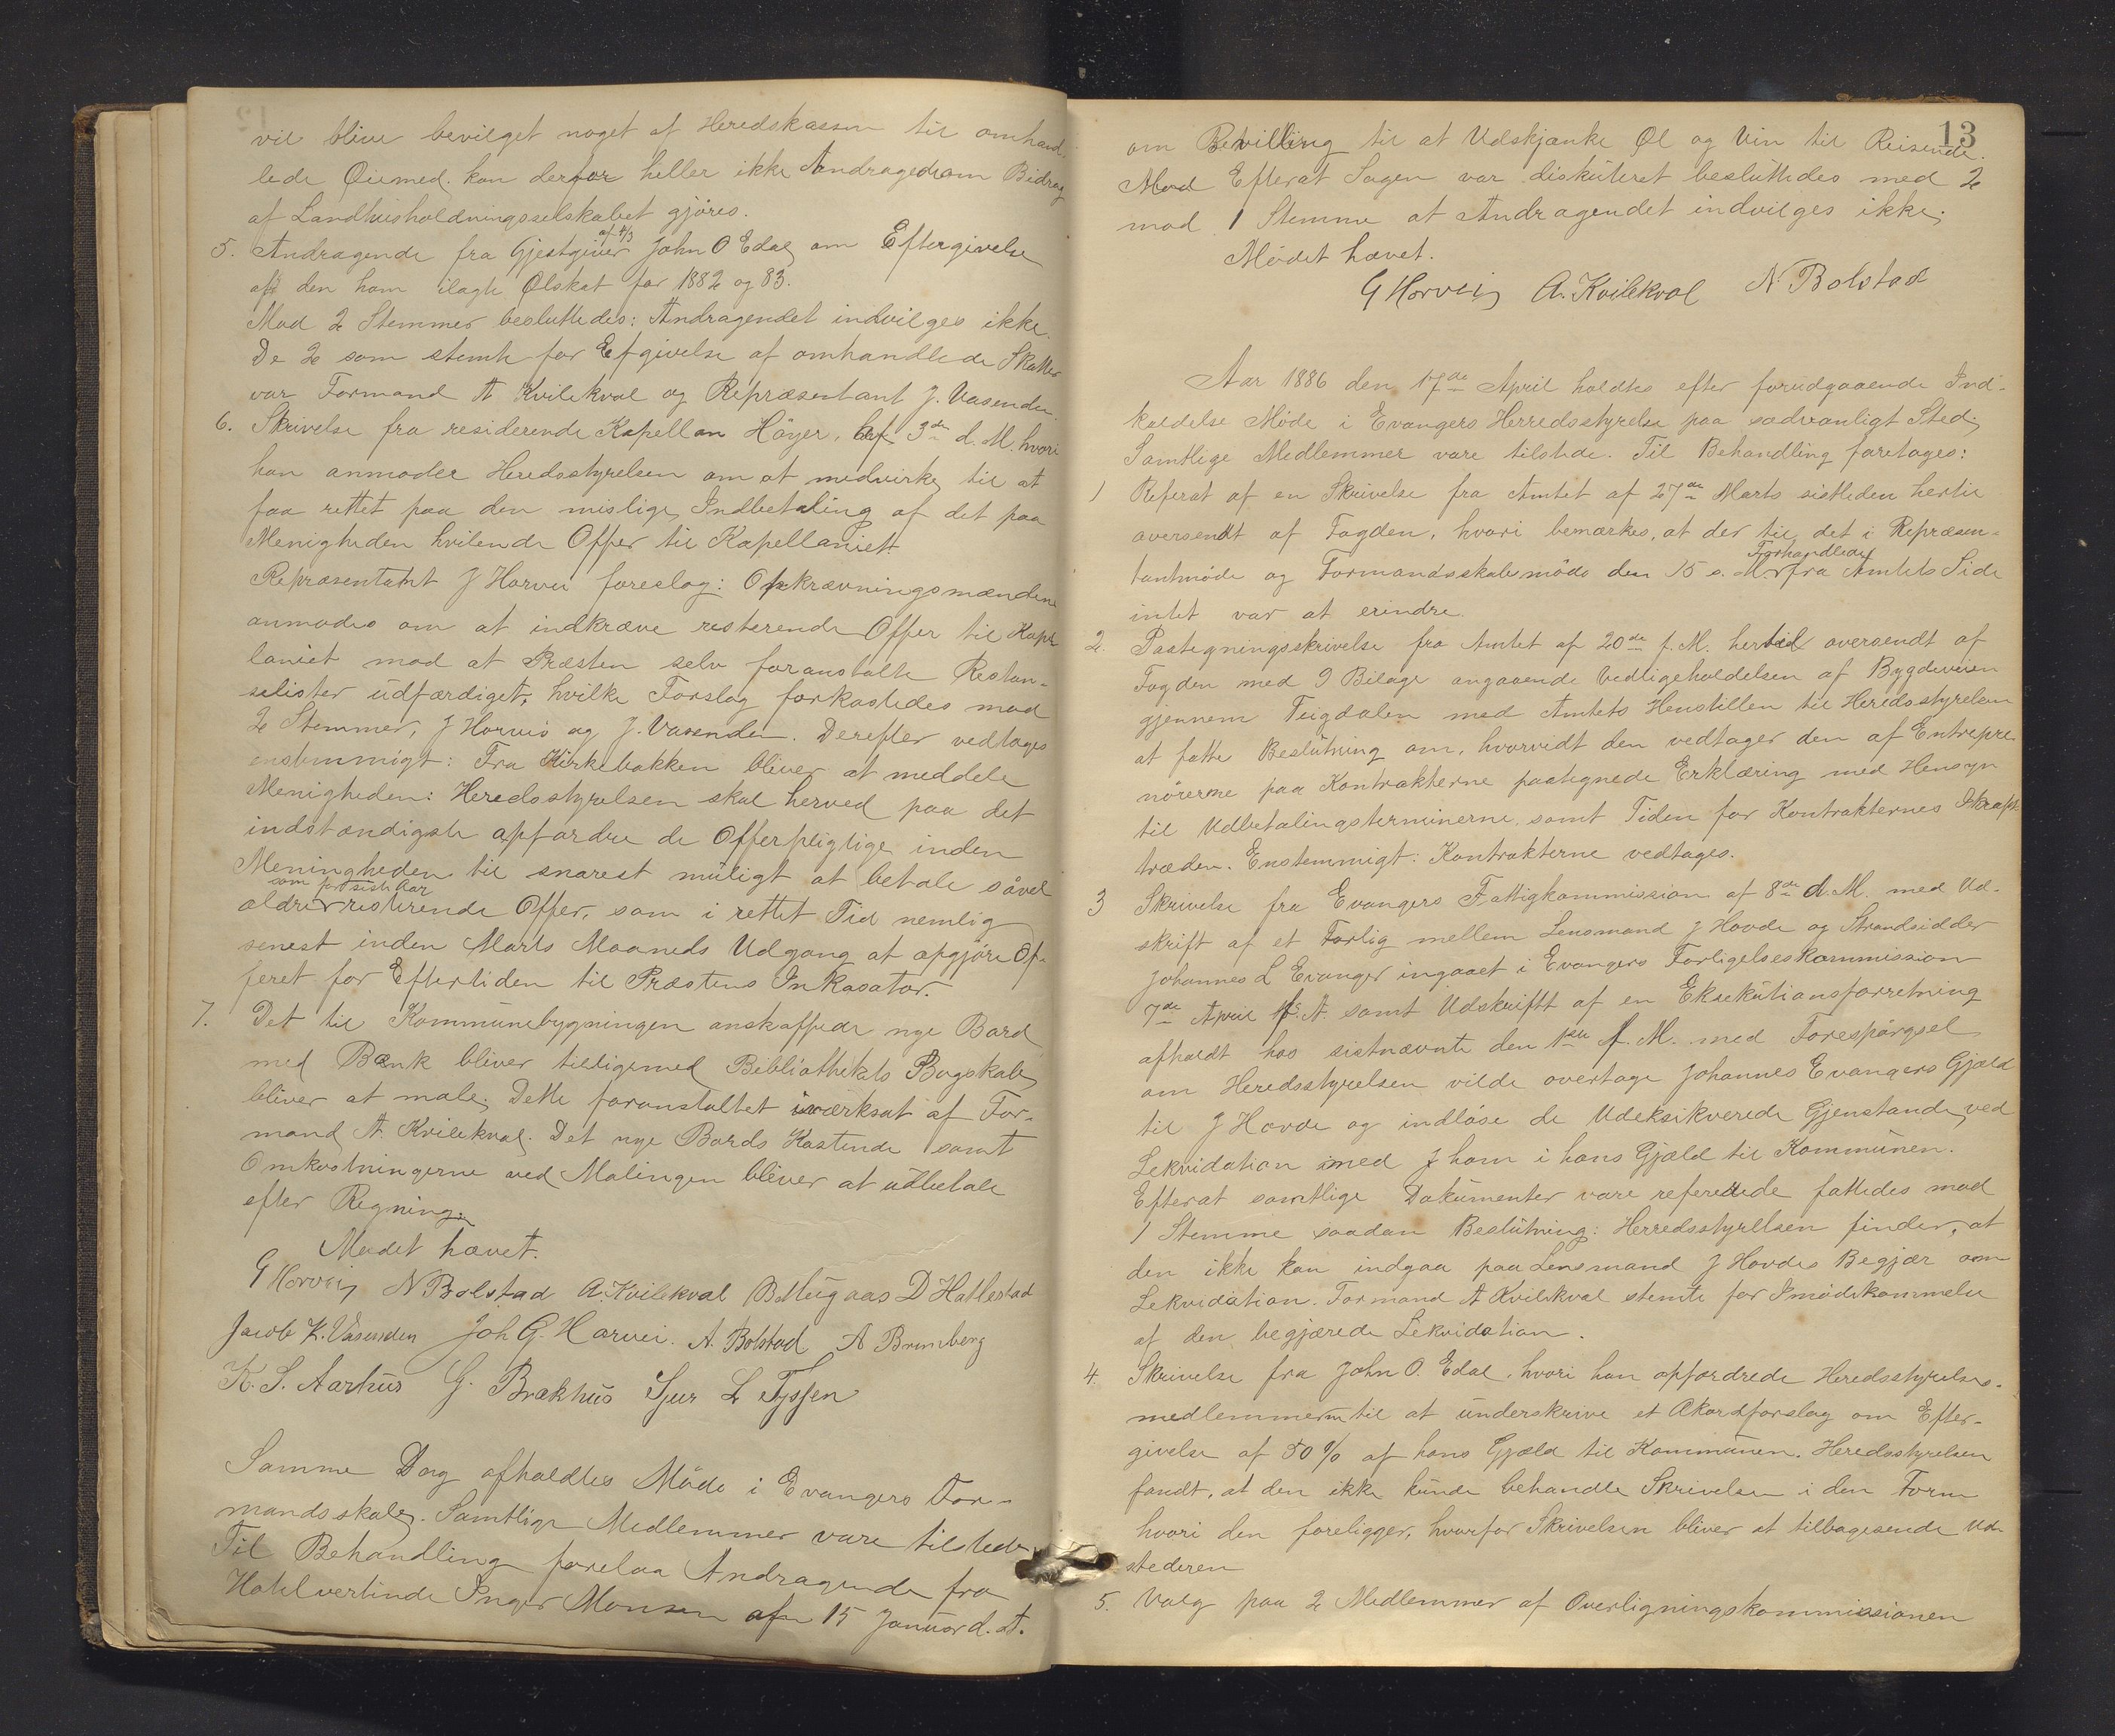 vil blive bevilget noget af Heredskassen til omhand-
lede Øiemed. kan derfor heller ikke Andragede om Bidrag
af Landhusholdningsselskabet gjøres.
5. Andragende fra Gjestgiver af 4/3 John O Edal om Eftergivelse
af den ham ilagte Ølskat for 1882 og 83.
Mod 2 Stemmer besluttedes: Andragendet indvilges ikke.
De 2 som stemte for Efgivelse af omhandlede Skatter
var Formand A Kvilekval og Repræsentant J. Vasenden.
6. Skrivelse fra residerende Kapellan Höyer, af 3de d. M. hvori
han anmoder Heredsstyrelsen om at medvirke til at
faa rettet paa den mislige Indbetaling af det paa
Menigheden hvilende Offer til Kapellaniet
Repræsentant J Horvei foreslog: Opkrævningsmændene
anmodes om at indkræve resterende Offer til Kapel
laniet mod at Præsten selv foranstalte Restan-
selister udfærdiget, hvilke Forslag forkastedes mod
2 Stemmer, J Horvei og J. Vasenden. Derefter vedtoges
enstemmigt: Fra Kirkebakken bliver at meddele
Menigheden: Heredsstyrelsen skal herved paa det
indstændigste opfordre de Offerpligtige inden
Meningheden til snarest muligt at betale såvel
ældre som for sidste Aar resterende Offer, som i rettet Tid nemlig
senest inden Marts Maaneds Udgang at opgjöre Of-
feret for Eftertiden til Præstens Inkasator.
7. Det til Kommunebygningen anskaffede nye Bord
med Bænk bliver tilligemed Bibliothekets Bogskab
bliver at male. Dette foranstaltet iværksat af For-
mand A. Kvilekval. Det nye Bords Kostende samt
Omkostningerne ved Malingen bliver at udbetale
efter Regning.
Mødet hævet.
G Horvei N Bolstad A. Kvilekval B Mugaas D Hallestad
Jacob K. Vasenden Joh G. Horvei. A. Bolstad A Brunborg
K. S. Aarhus G. Brækhus Sjur L Fyssen
Samme Dag afholdtes Möde i Evangers For-
mandsskab. Samtlige Medlemmer vare tilstede
Til Behandling forelaa Andragende fra
Hotelvertinde Inger Monsen af 15 Januar d. A.
13
om Bevilling til at Udskjænke Øl og Vin til Reisende.
Mod Efterat Sagen var diskuteret besluttedes med 2
mod 1 Stemme at Andragendet indvilges ikke.
Mödet hævet.
G Horvei A. Kvilekval N. Bolstad
Aar 1886 den 17de April holdtes efter forudgaaende Ind-
kaldelse Möde i Evangers Herredsstyrelse paa sædvanligt Sted.
Samtlige Medlemmer vare tilstede. Til Behandling foretoges:
1 Referat af en Skrivelse fra Amtet af 27de Marts sistleden hertil
oversendt af Fogden, hvori bemærkes, at der til det i Repræsen-
tantmöde og Formandsskabsmöde den 15 s. M. Forhandlede fra Amtets Side
intet var at erindre
2. Paategningsskrivelse fra Amtet af 20de f. M. hertil oversendt af
Fogden med 9 Bilage angaaende Vedligeholdelsen af Bygdeveien
gjennem Teigdalen med Amtets Henstillen til Heredsstyrelsen
at fatte Beslutning om, hvorvidt den vedtager den af Entrepre-
nörerne paa Kontrakterne paategnede Erklæring med Hensyn
til Udbetalingsterminerne samt Tiden for Kontrakternes Ikraft-
træden. Enstemmigt: Kontrakterne vedtages.
3 Skrivelse fra Evangers Fattigkommission af 8de d. M. med Ud-
skrift af et Forlig mellem Lensmand J Hovde og Strandsidder
Johannes L Evanger ingaaet i Evangers Forligelseskommission
7de April f. A. samt Udskrift af en Eksekutionsforretning
afholdt hos sistnævnte den 1ste f. M. med Forespörgsel
om Heredsstyrelsen vilde overtage Johannes Evangers Gjæld
til J Hovde og indlöse de Udeksikverede Gjenstande ved
Lekvidation med ham i hans Gjæld til Kommunen.
Efterat samtlige Dokumenter vare refererede fattedes mod
1 Stemme saadan Beslutning: Herredsstyrelsen finder, at
den ikke kan indgaa paa Lensmand J Hovdes Begjær om
Lekvidation. Formand A Kvilekval stemte for Imödekommelse
af den begjærede Lekvidation.
4. Skrivelse fra John O. Edal, hvori han opfordrede Heredsstyrelses-
medlemmerne til at underskrive et Akordforslag om Efter-
givelse af 50 % af hans Gjæld til Kommunen. Heredsstyrelsen
fandt, at den ikke kunde behandle Skrivelsen i den Form
hvori den foreligger, hvorfor Skrivelsen bliver at tilbagesende Ud-
stederen
5. Valg paa 2 Medlemmer af Overligningskommissionen